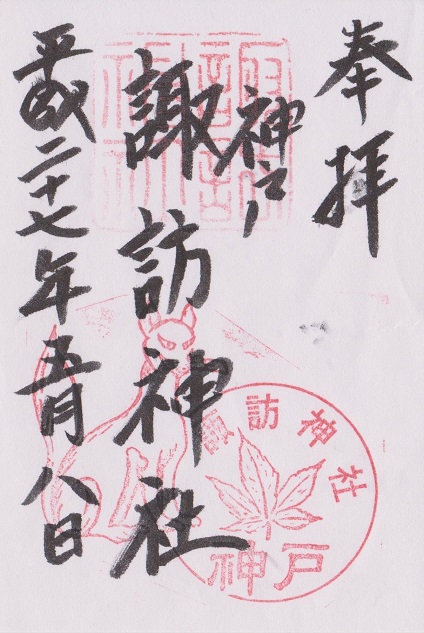 奉拝
神戸
諏訪神社
平成二十七年五月八日
諏訪神社
神戸